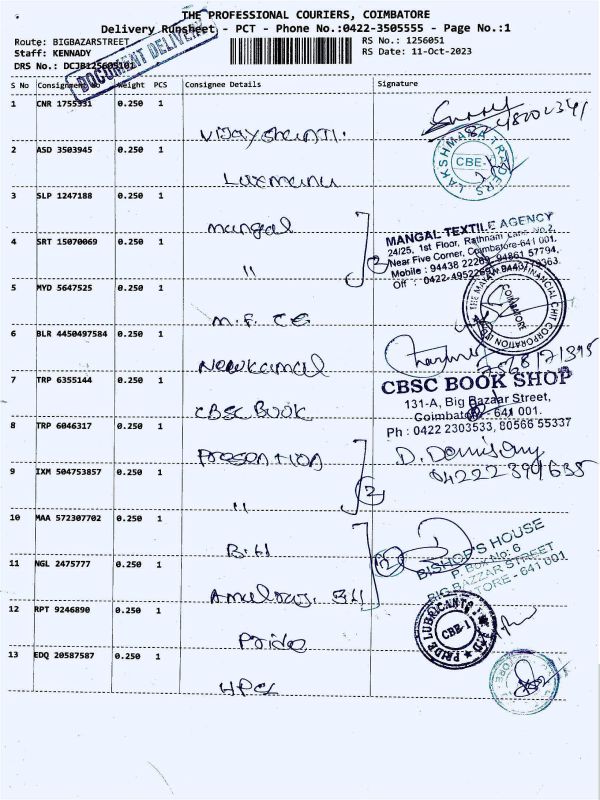 THE PROFESSIONAL COURIERS, COIMBATORE
Delivery Runsheet - PCT - Phone No.:0422-3505555 - Page No.:1
Route: BIGBAZARSTREET RS No.: 1256051
Staff: KENNADY RS Date: 11-Oct-2023
DRS No.: DCJB125605101
DOCUMENT DELIVERY
S No Consignment No Weight PCS Consignee Details Signature
1 CNR 1755331 0.250 1
Vijayshanti.
2 ASD 3503945 0.250 1
Laxmanu
LAKSHMANA TRADERS CBE-1
3 SLP 1247188 0.250 1
mangal
2
MANGAL TEXTILE AGENCY
24/25, 1st Floor, Rathnam Lane No.2,
Near Five Corner, Coimbatore-641 001.
4 SRT 15070069 0.250 1
"
5 MYD 5647525 0.250 1
M.F. CG
6 BLR 4450497584 0.250 1
Newkamal
7 TRP 6355144 0.250 1
CBSC BOOK
CBSC BOOK SHOP
131-A, Big Bazaar Street,
Coimbatore - 641 001.
Ph : 0422 2303533, 80566 55337
8 TRP 6046317 0.250 1
Presention
9 IXM 504753857 0.250 1
"
2
10 MAA 572307702 0.250 1
B.H
11 NGL 2475777 0.250 1
Amulraj. BH
BISHOP'S HOUSE
P. Box No: 6
BIG BAZZAR STREET
12 RPT 9246890 0.250 1
Pride
PRIDE LUBRICANTS
CBE-1
13 EDQ 20587587 0.250 1
HPCL